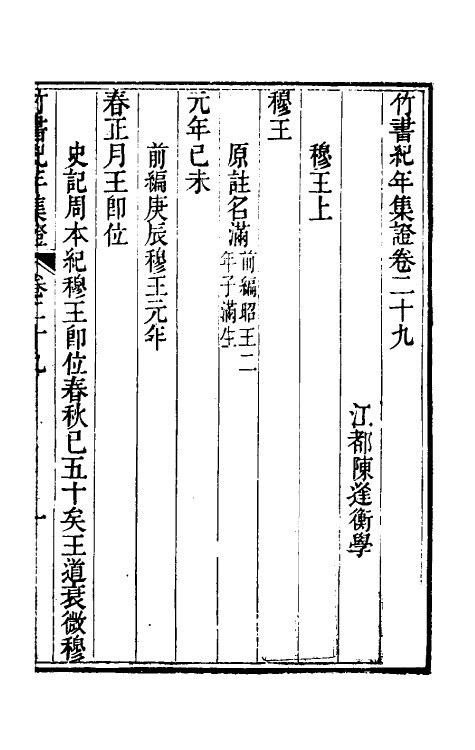 竹書紀年集證卷二十九
江都陳逢衡學
穆王上
穆王
原註名滿前編昭王二
年子滿生
元年己未
前編庚辰穆王元年
春正月王卽位
史記周本紀穆王卽位春秋已五十矣王道衰微穆
竹書紀年集證 卷二十九 一